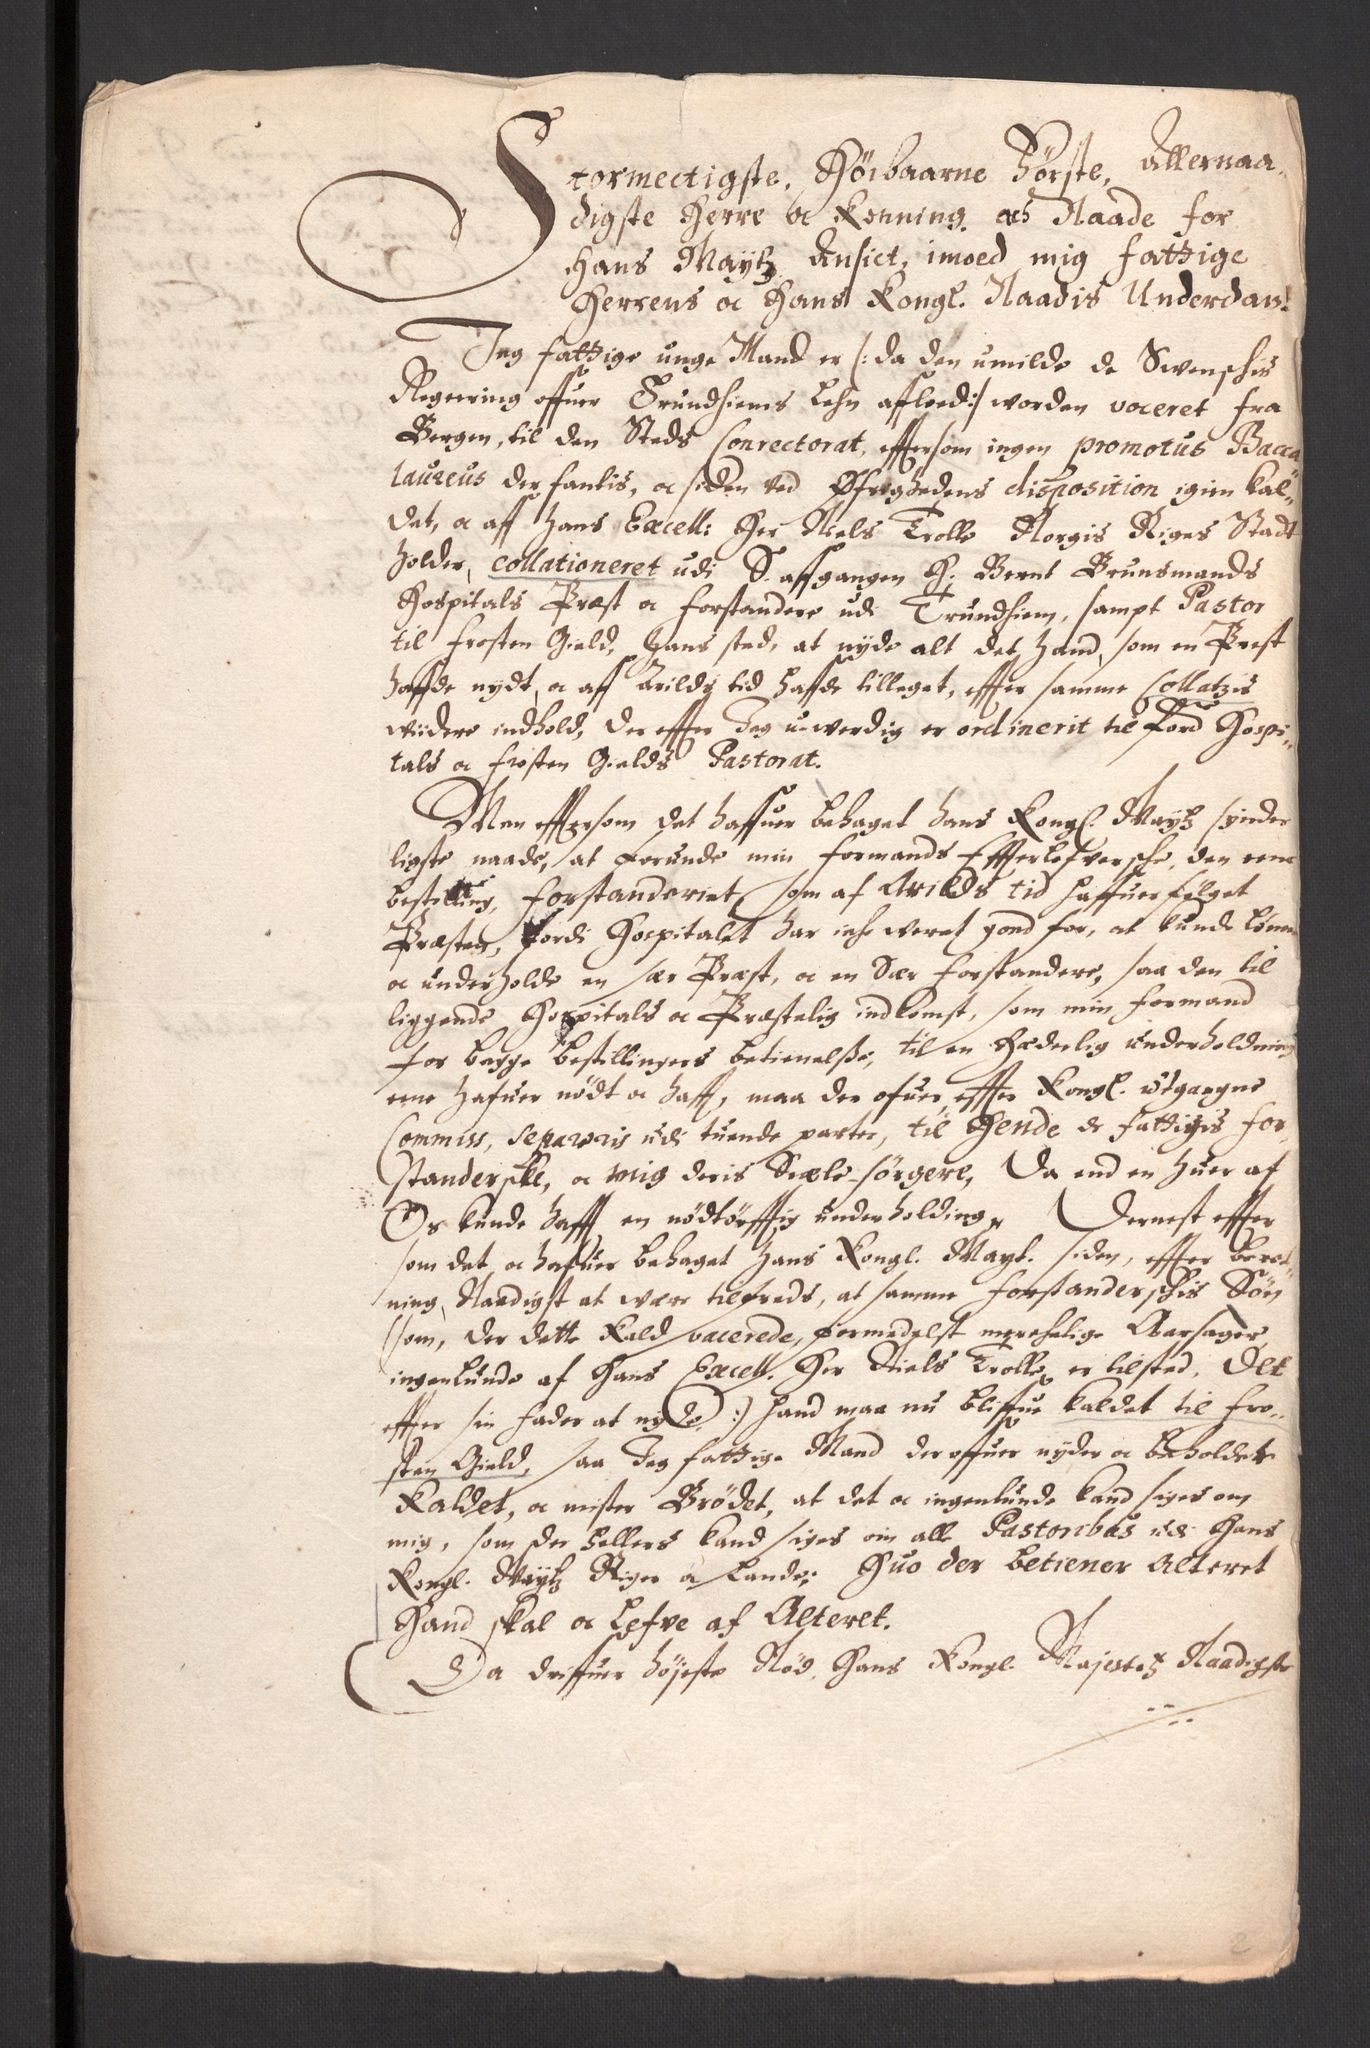 Stormectigste, Höibaarne Förste, Allernaa,
digste Herre oc Konning, ald Naade for
Hans Maytz Ansict, imoed mig fattige
Herrens oc Hans Kongl. Naadis Underdan:
Jeg fattige unge Mand er /: da den umilde de Swenskis
Regering offuer Trundhiems Lehn afleed :/ worden voceret fra
Bergen, til den Steds Conrectorat, effersom ingen promotus Bacca
laureus der fantis, oc siden ved Øfrighedens disposition igien kal,,
det, oc aff Hans Excell: Her Niels Trolle Norgis Riges Stadt
holder, collationeret udi S. affgangen H: Bernt Brunsmands
Hospitals Præst oc Forstandere udi Trundhiem, sampt Pastor
til Frosten Gield, Hans sted, at nyde alt det hand, som en Prest
haffde nydt, oc aff Arilds tid haffde tilleget, effter samme Collatzis
widere indhold, der effter Jeg uwerdig er ordinerit til förd Hospi,,
tals oc Frosten Gields Pastorat.
Men effersom det haffuer behaget Hans Kongl. Maytz synder
ligste naade, at forunde min Formands Effterlefversche, den eene
bestilling, Forstanderiet som af Arilds tid haffuer fölget
Præsten, fordi Hospitalet har iche weret god for, at kunde lönne
oc underholde en sær Præst, oc en Sær Forstandere, saa den til
liggende Hospitals oc Præstelig indkomst, som min Formand
for begge bestillingers betienelsse, til en Hæderlig underholdning
ene hafuer nödt oc hafft, maa der ofuer, effter Kongl. udgangne
Commiss, separeris udi tuende parter, til Hende de Fattigis For,
standerske, oc mig deris Siæle-sörgere, Da end en huer af
Os kunde hafft en nödtörfftig underholding. Dernest effter
som det oc hafuer behaget Hans Kongl. Mayt. siden, effter beret,,
ning, Naadigst at være tilfreds, at samme Forstanderschis Sön
(som, der dette Kald vacerede, formedelst merchelige Aarsager,
ingenlunde af Hans Excell. Her Niels Trolle er tilsted, Det
effter sin Fader at nyde :) hand maa nu blifue kaldet til Fro,,
sten Gield, saa Jeg fattige Mand der offuer nyder oc beholder
Kaldet, oc mister Brödet, at det oc ingenlunde kand siges om
mig, som der hellers kand siges om alle Pastoribus udi Hans
Kongl. Maytz Riger oc Lande: Huo der betiener Alteret
Hand skal oc Lefve af Alteret.
Da drifuer höjeste Nöd, Hans Kongl. Majestetz Naadigste
2